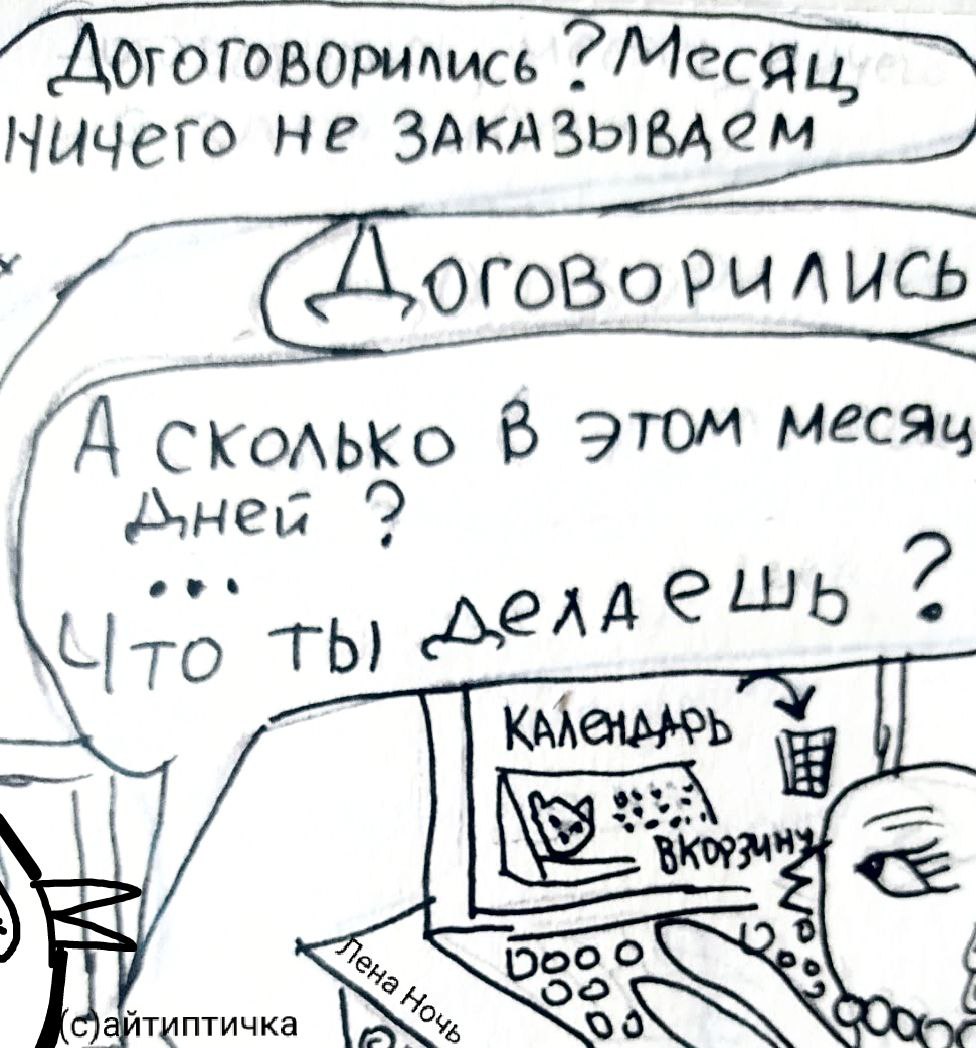 Догоговорились? Месяц
ничего не заказываем
Договорились
А сколько в этом месяц
дней?
...
Что ты делаешь?
КАЛЕНДАРЬ
В КОРЗИНУ
Лена Ночь
(с)айтиптичка